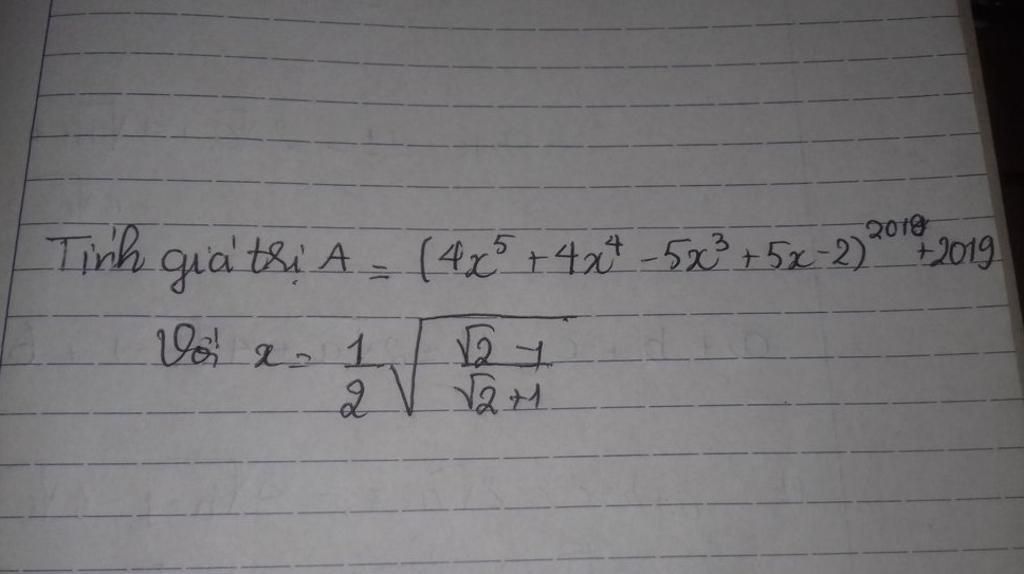 Tính giá trị A = (4x⁵ + 4x⁴ - 5x³ + 5x - 2)²⁰¹⁸ + 2019
Với x = 1/2 √((√2 - 1)/(√2 + 1))